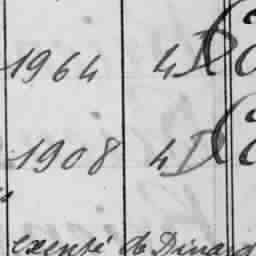 1964 4D
1908 4D
exempté de Dinard